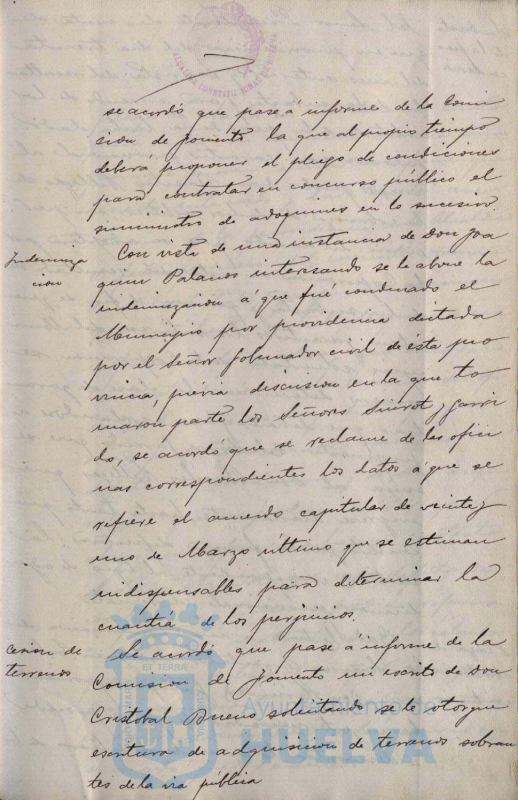 se acordó que pase á informe de la Comi
sion de fomento la que al propio tiempo
deberá proponer el pliego de condiciones
para contratar en concurso público el
suministro de adoquines en lo sucesivo.
Indemniza
cion
Con vista de una instancia de Don Joa
quin Palacios interesando se le abone la
indemnizacion á que fué condenado el
Municipio por providencia dictada
por el Señor Gobernador civil de ésta pro
vincia, prévia discusion en la que to
maron parte los Señores Sinrot y Garri
do, se acordó que se reclame de las ofici
nas correspondientes los datos á que se
refiere el acuerdo capitular de veinte y
uno de Marzo último que se estiman
indispensables para determinar la
cuantía de los perjuicios.
cesion de
terrenos
Se acordó que pase á informe de la
Comision de fomento un escrito de Don
Cristobal Bueno solicitando se le otorgue
escritura de adquisicion de terrenos sobran
tes de la via pública
Ayuntamiento de
HUELVA